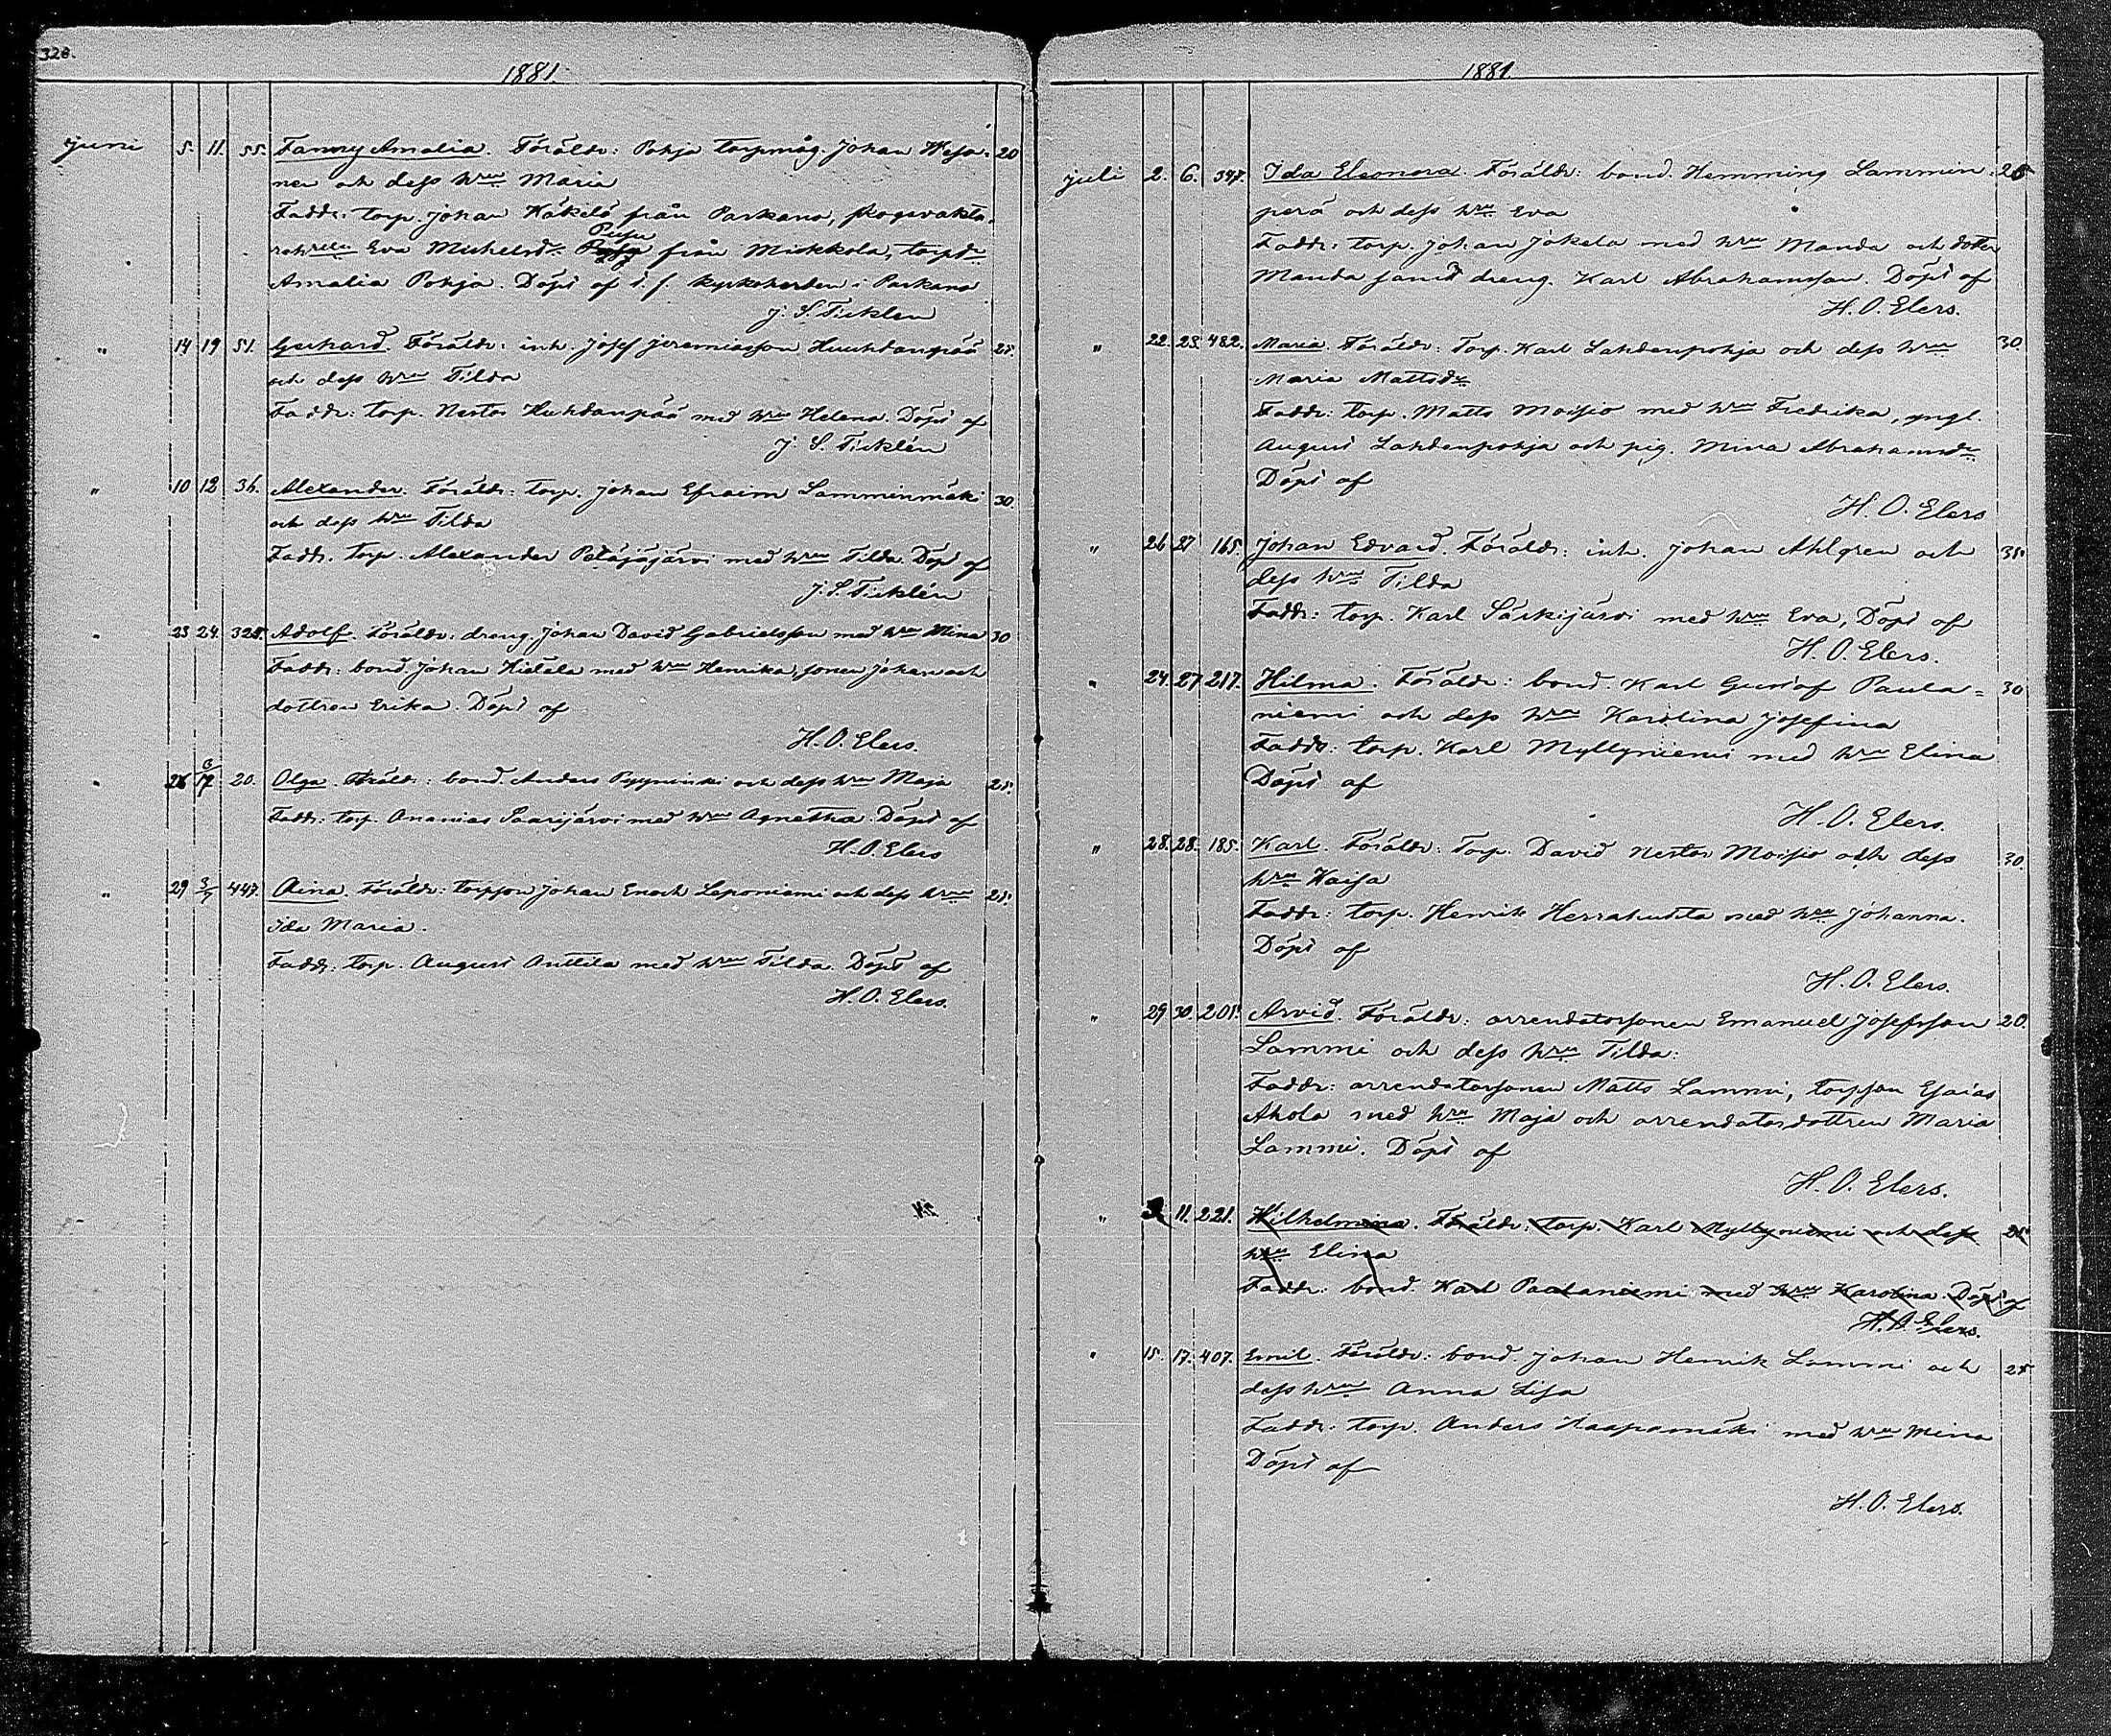 328.
1881.
juni 5. 11. 55. Fanny Amalia. Föräldr: Pohja torpmåg. Johan Wesa- 20
nen och dess hru Maria
Faddr: torp. Johan Käkelä från Parkano, skogsvakta-
rehru Eva Michelsdr från Mickkola, torpdr
Amalia Pohja. Döpt af t. f. kyrkoherden i Parkano
J. S. Ticklen
" 14 19 51. Gerhard. Föräldr: inh. Josef Jeremiasson Huuhdanpää 25.
och dess hru Tilda
Faddr: torp. Nestor Huhdanpää med hru Helena. Döpt af
J. S. Ticklén
" 10 12 36. Alexander. Föräldr: torp. Johan Efraim Lamminmäki 30.
och dess hru Tilda
Faddr. torp. Alexander Petäjäjärvi med hru Tilda. Döpt af
J. S. Ticklén
" 23 24. 325. Adolf. Föräldr: dreng. Johan David Gabrielsson med hru Mina 30
Faddr: bond. Johan Hietala med hru Henrika, sonen Johan och
dottren Erika. Döpt af
H. O. Elers.
" 26 17/6 20. Olga. Föräldr: bond. Anders och dess hru Maja 25.
Faddr: torp. Ananias Saarijärvi med hru Agnetha. Döpt af
H. O. Elers
" 29 3/7 447. Aina. Föräldr: torpson Johan Enoch Leponiemi och dess hru 25.
Ida Maria.
Faddr: torp. August Anttila med hru Tilda. Döpt af
H. O. Elers.
1881
juli 2. 6. 347. Ida Eleonora. Föräldr: bond. Hemming Lammin- 25
perä och dess hru Eva
Faddr: torp. Johan Jokela med hru Manda och dotter
Manda samt dreng. Karl Abrahamsson. Döpt af
H. O. Elers.
" 22. 23. 482. Maria. Föräldr: torp. Karl Lahdenpohja och dess hru 30.
Maria Mattsdr
Faddr: torp. Matts Moisio med hru Fredrika, yngl.
August Lahdenpohja och pig. Mina Abrahamsdr
Döpt af
H. O. Elers
" 26 27 165. Johan Edvard. Föräldr: inh. Johan Ahlgren och 35.
dess hru Tilda
Faddr: torp. Karl Särkijärvi med hru Eva, Döpt af
H. O. Elers.
" 24. 27 217. Hilma. Föräldr: bond. Karl Gustaf Paula= 30
niemi och dess hru Karolina Josefina
Faddr: torp. Karl Myllyniemi med hru Elina
Döpt af
H. O. Elers.
" 28. 28. 185. Karl. Föräldr: torp. David Nestor Moisio och dess 30.
hru Kaisa
Faddr: torp. Henrik Herrahuhta med hru Johanna.
Döpt af
H. O. Elers.
" 29 30. 205. Arvid. Föräldr: arrendatorsonen Emanuel Josefsson 20.
Lammi och dess hru Tilda:
Faddr: arrendatorsonen Matts Lammi, torpson Esaias
Ahola med hru Maja och arrendatordottren Maria
Lammi. Döpt af
H. O. Elers.
" 11. 221. Wilhelmina. Föräldr: torp. Karl Myllyniemi och dess
hru Elina
Faddr: bond. Karl Paulaniemi med hru Karolina. Döpt af
H. O. Elers.
" 15. 17. 407. Emil. Föräldr: bond. Johan Henrik Lammi och 25
dess hru Anna Lisa
Faddr: torp. Anders Haapamäki med hru Mina
Döpt af
H. O. Elers.